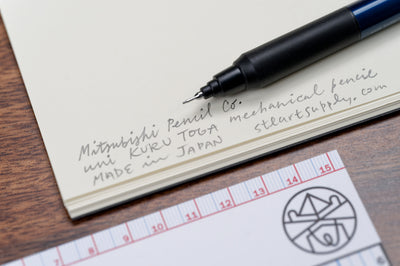 Mitsubishi Pencil Co.
uni KURU TOGA mechanical pencil
MADE in JAPAN stlartsupply.com
7 8 9 10 11 12 13 14 15